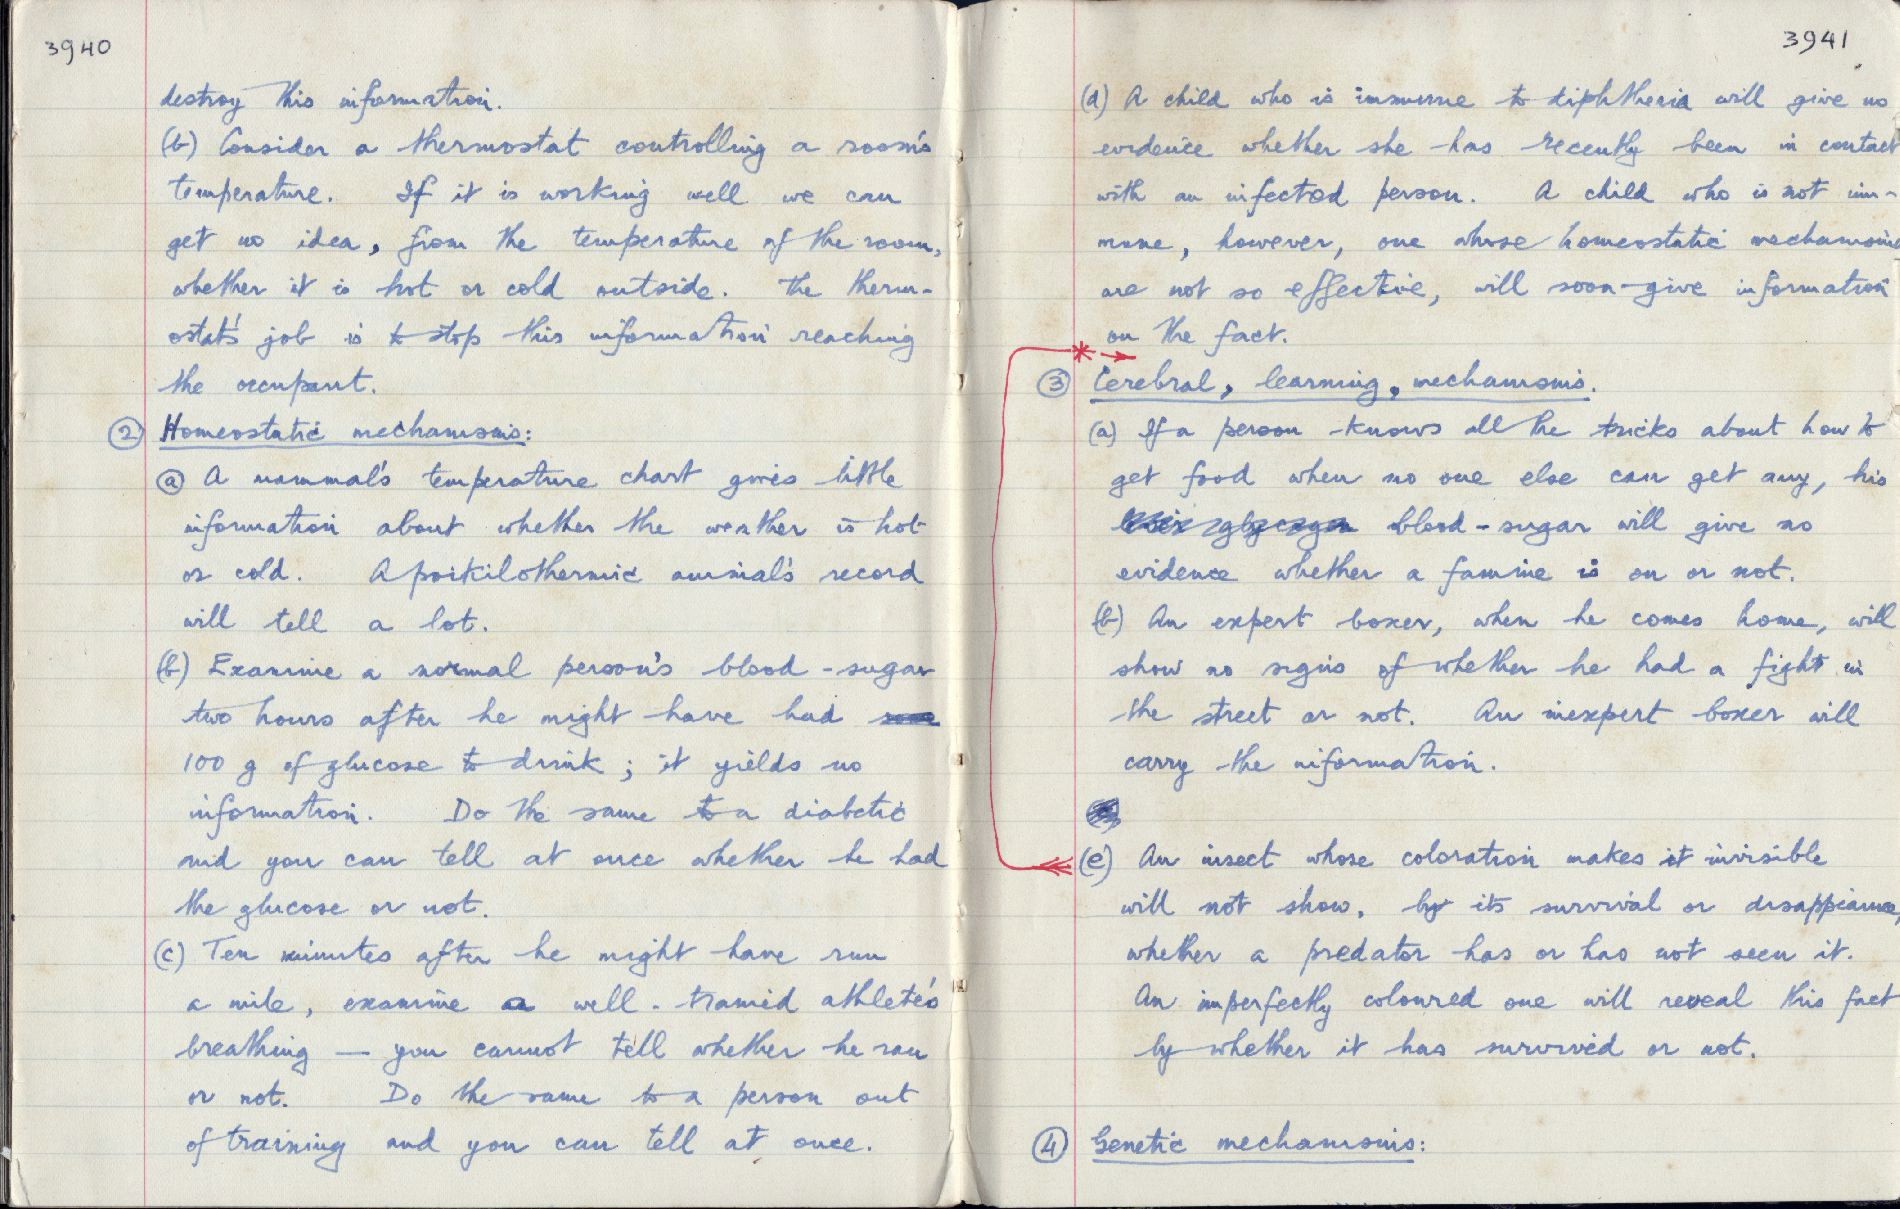 3940
destroy this information.
(b) Consider a thermostat controlling a room's
temperature. If it is working well we can
get no idea, from the temperature of the room,
whether it is hot or cold outside. The therm-
ostat's job is to stop this information reaching
the occupant.
② Homeostatic mechanisms:
ⓐ A mammal's temperature chart gives little
information about whether the weather is hot
or cold. A poikilothermic animal's record
will tell a lot.
(b) Examine a normal person's blood-sugar
two hours after he might have had
100 g of glucose to drink; it yields no
information. Do the same to a diabetic
and you can tell at once whether he had
the glucose or not.
(c) Ten minutes after he might have run
a mile, examine a well-trained athlete's
breathing — you cannot tell whether he ran
or not. Do the same to a person out
of training and you can tell at once.
3941
(d) A child who is immune to diphtheria will give no
evidence whether she has recently been in contact
with an infected person. A child who is not im-
mune, however, one whose homeostatic mechanisms
are not so effective, will soon give information
on the fact.
③ Cerebral, learning, mechanisms.
(a) If a person knows all the tricks about how to
get food when no one else can get any, his
blood-sugar will give no
evidence whether a famine is on or not.
(b) An expert boxer, when he comes home, will
show no signs of whether he had a fight in
the street or not. An inexpert boxer will
carry the information.
(e) An insect whose coloration makes it invisible
will not show, by its survival or disappearance,
whether a predator has or has not seen it.
An imperfectly coloured one will reveal this fact
by whether it has survived or not.
④ Genetic mechanisms: